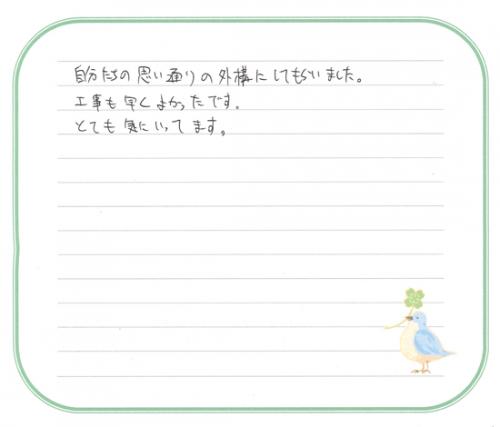 自分たちの思い通りの外構にしてもらいました。
工事も早くよかったです。
とても気にいってます。